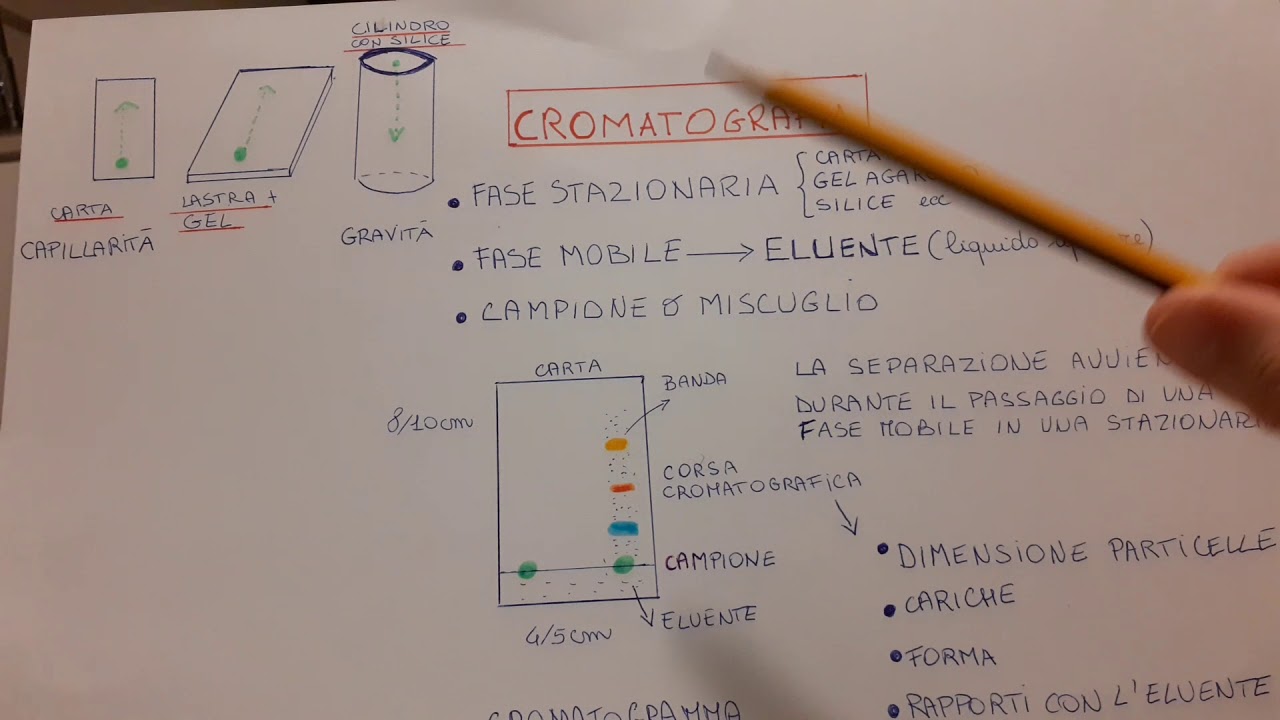 CILINDRO
CON SILICE
CARTA
CAPILLARITĀ
LASTRA +
GEL
GRAVITĀ
CROMATOGRAFIA
• FASE STAZIONARIA
CARTA
GEL
SILICE ecc
• FASE MOBILE → ELUENTE (liquido
• CAMPIONE O MISCUGLIO
CARTA
8/10cm
4/5cm
BANDA
CORSA
CROMATOGRAFICA
CAMPIONE
ELUENTE
LA SEPARAZIONE AVVIEN
DURANTE IL PASSAGGIO DI UNA
FASE MOBILE IN UNA STAZIONARI
• DIMENSIONE PARTICELLE
• CARICHE
• FORMA
• RAPPORTI CON L'ELUENTE
CROMATOGRAMMA